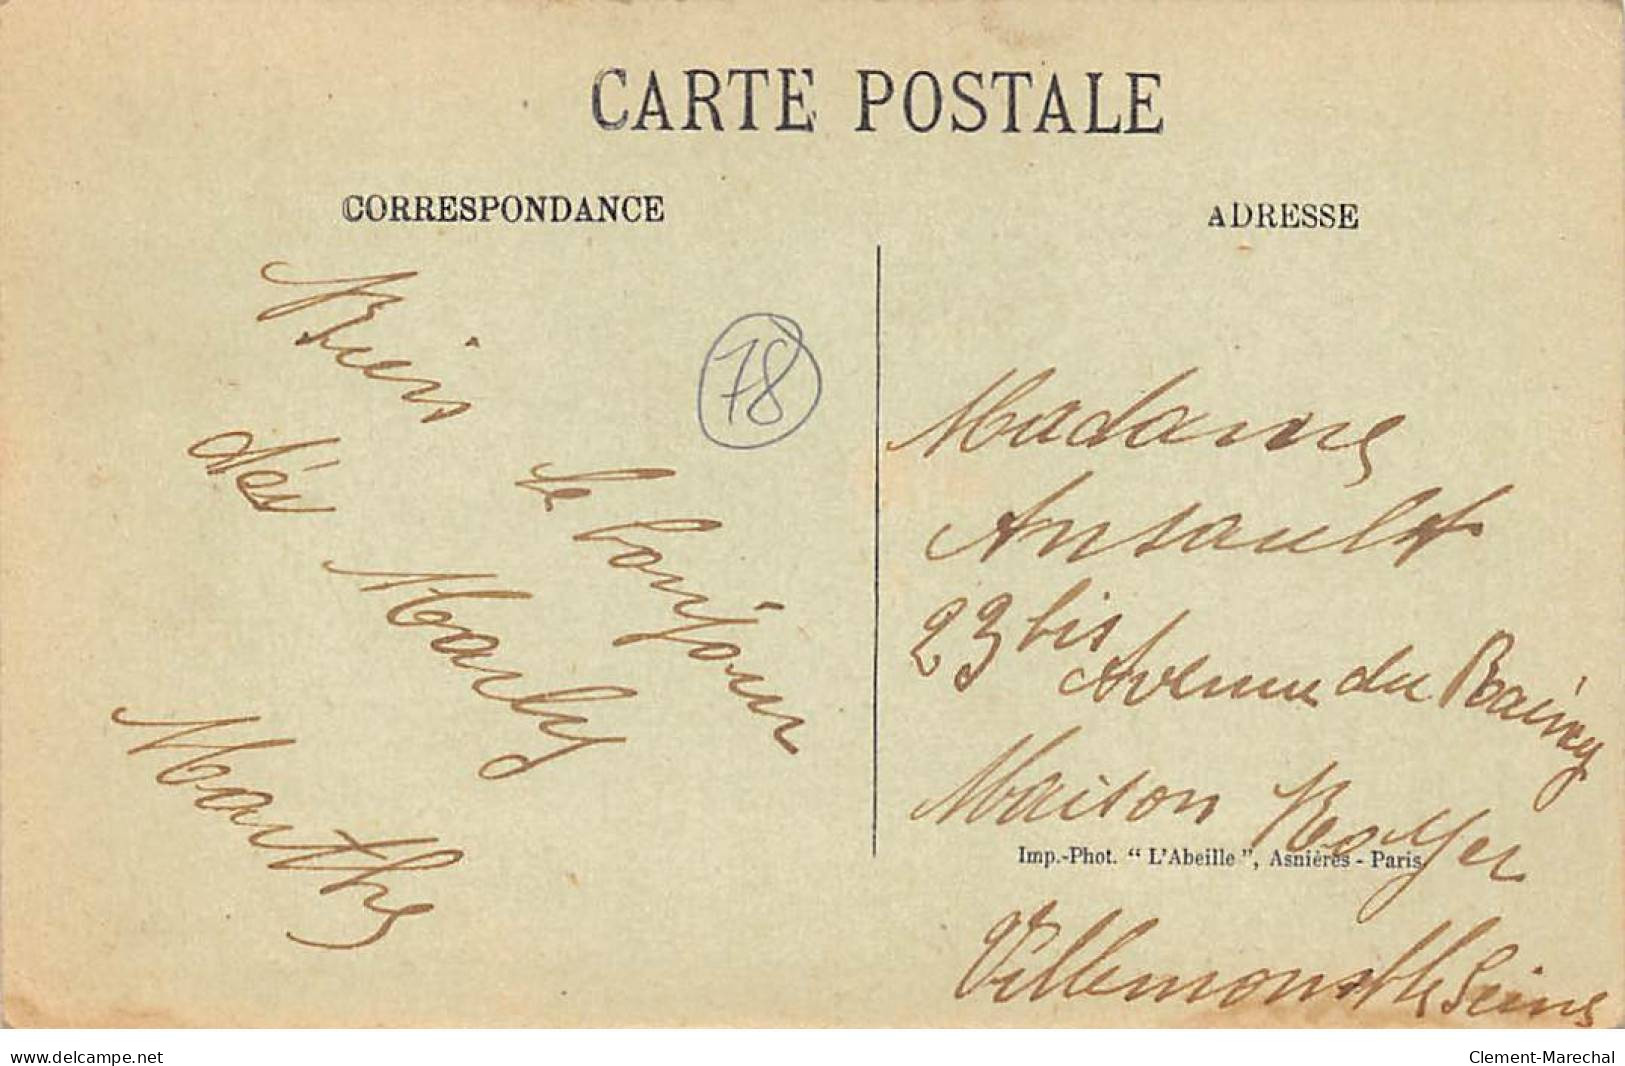 CARTE POSTALE
CORRESPONDANCE
ADRESSE
78
Bien le bonjour
dès Marly
Marthe
Madame
Ansault
23 bis Avenue du Raincy
Maison Royer
Imp.-Phot. “ L'Abeille ”, Asnières - Paris
Villemomble Seine
www.delcampe.net
Clement-Marechal